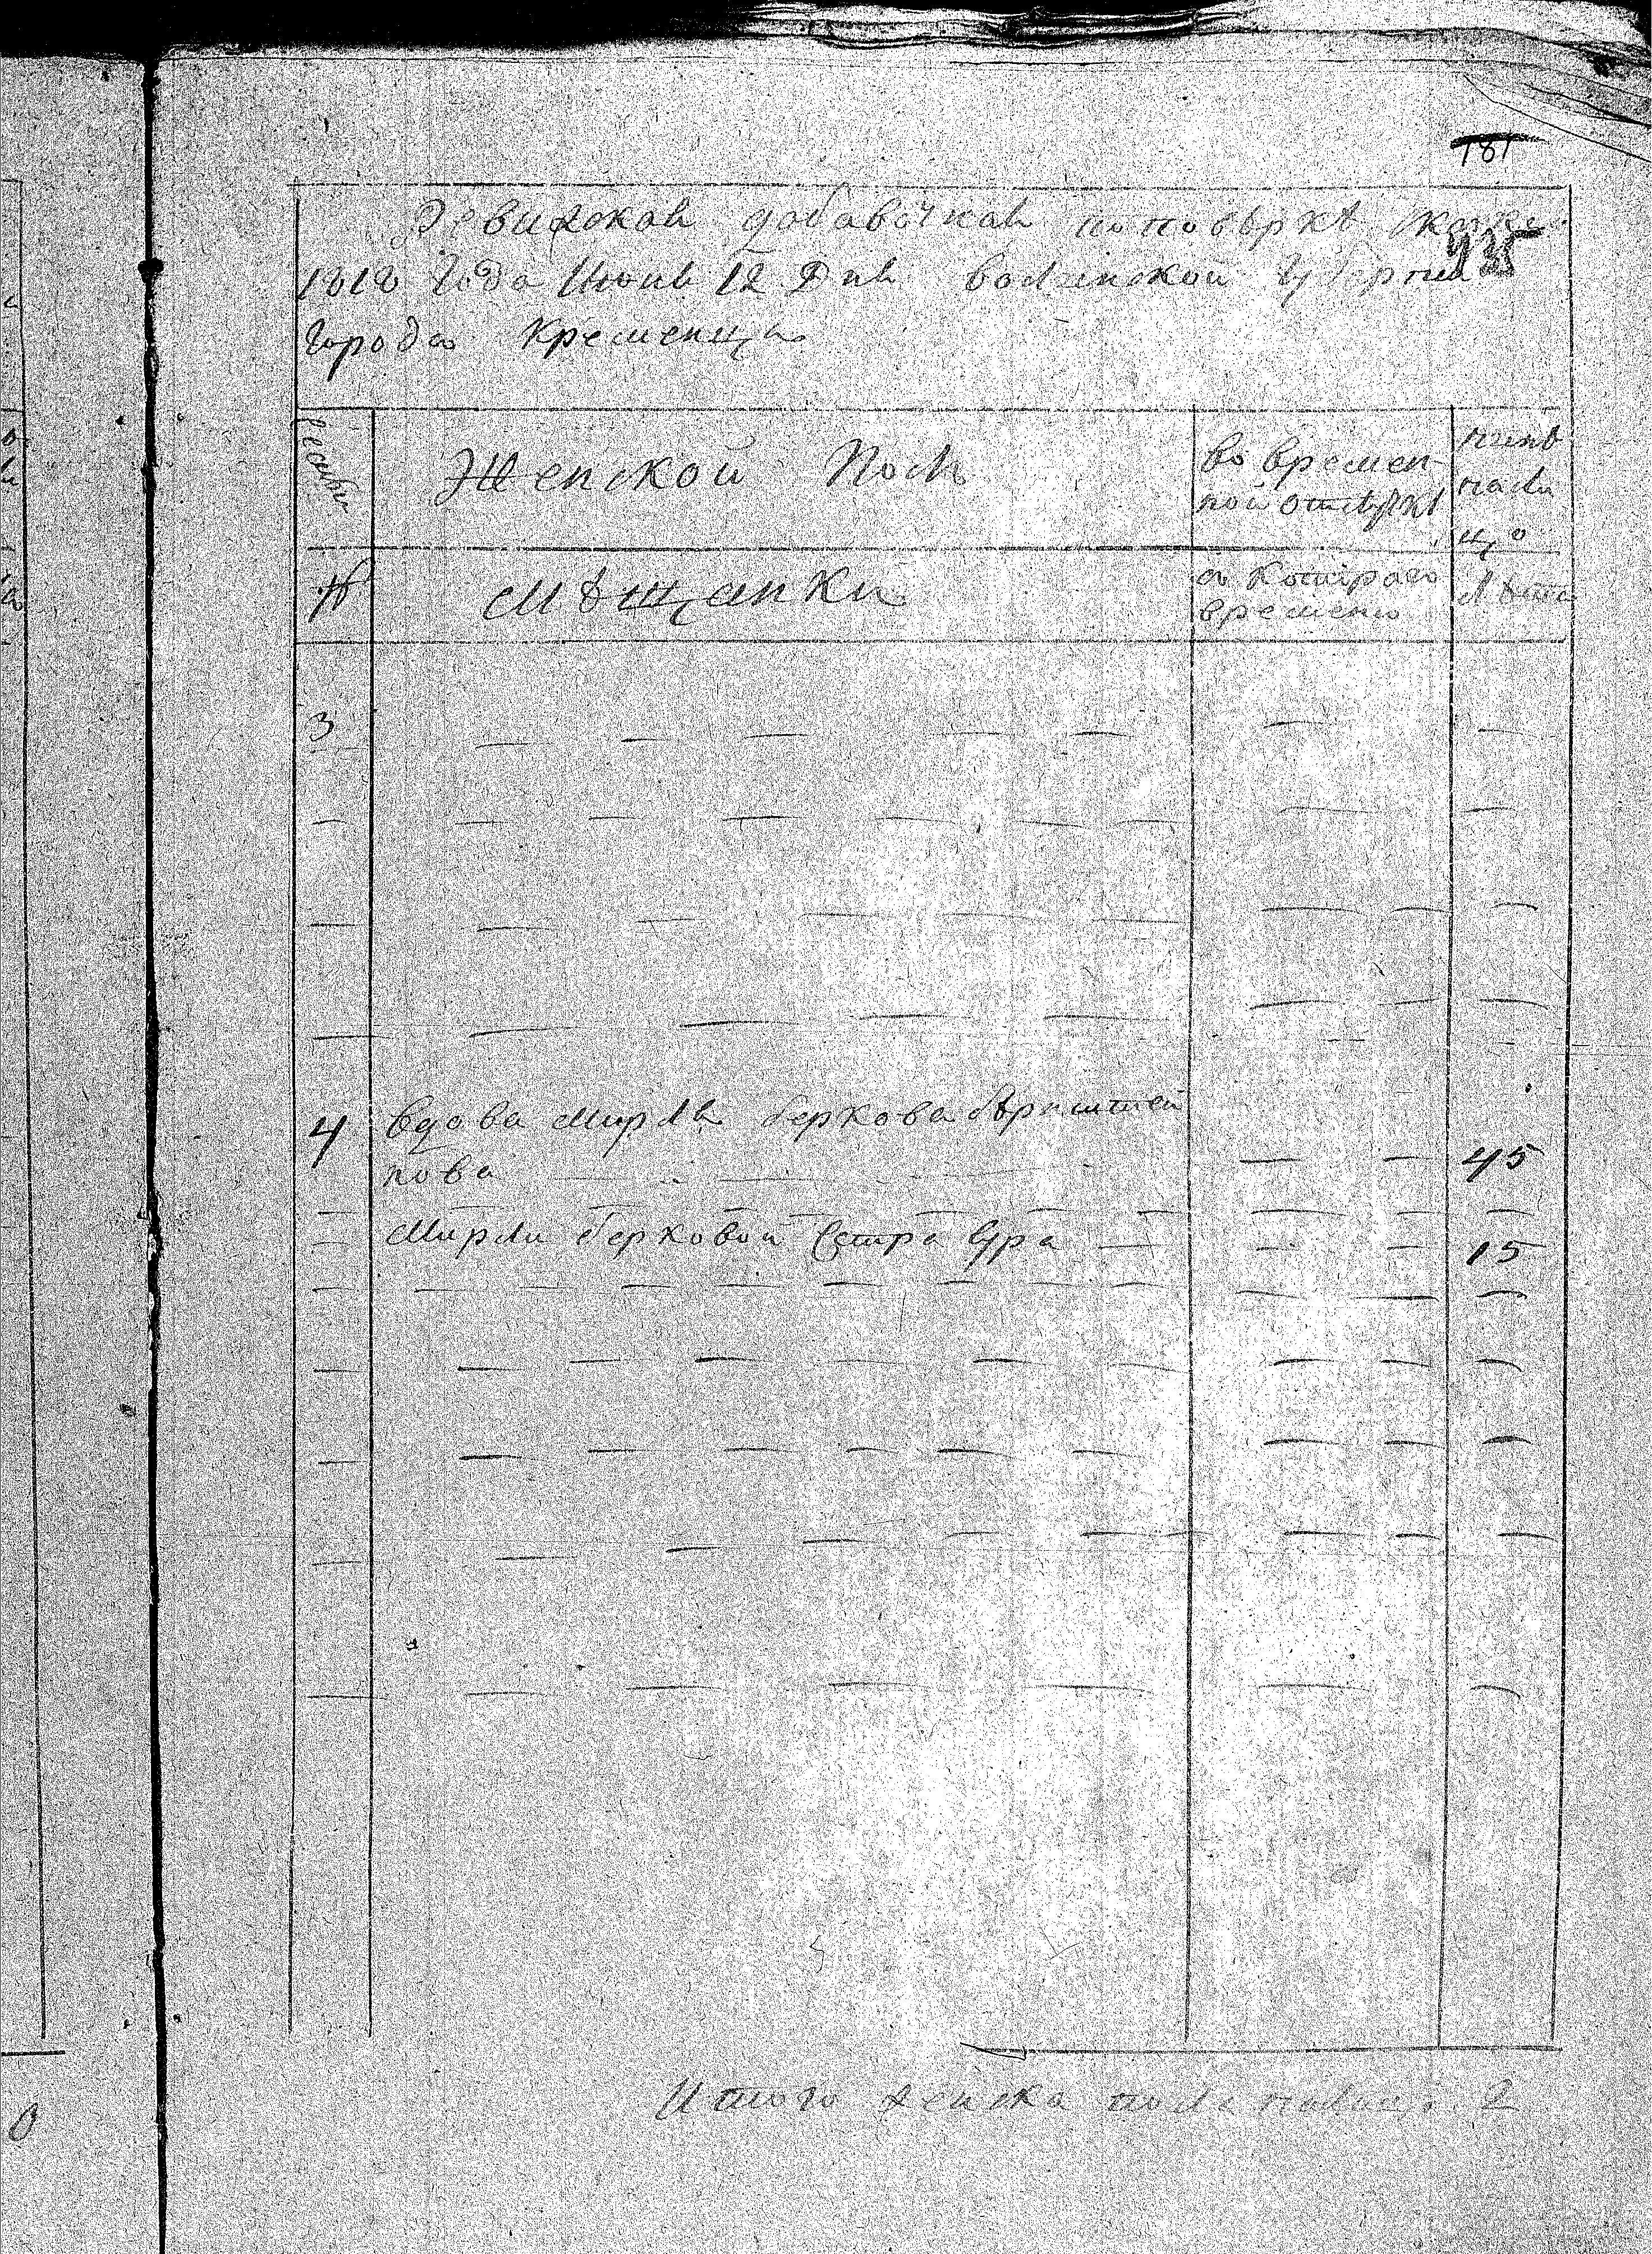 181
Ревижскаѧ добавочнаѧ по повѣркѣ
935
1818 Года Июнѧ 12 Днѧ волынской Губернии
Города Кременца
Женской Полъ
во времен-
ной отлучкѣ
нынѣ
на ли
цо
№
Мѣщанки
съ котораго
времени
Лѣта
3
4 вдова Мирля беркова бернштей
нова 45
Мирли берковой сестра 15
Итого женска пола налицо 2